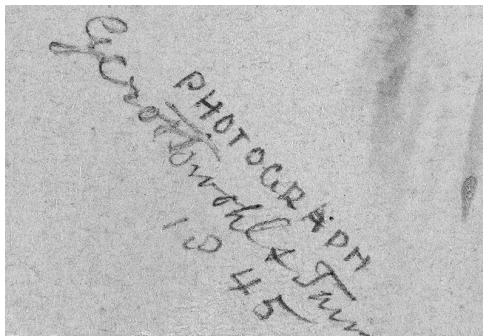 PHOTOGRAPH
Gerothwohl &
18 45